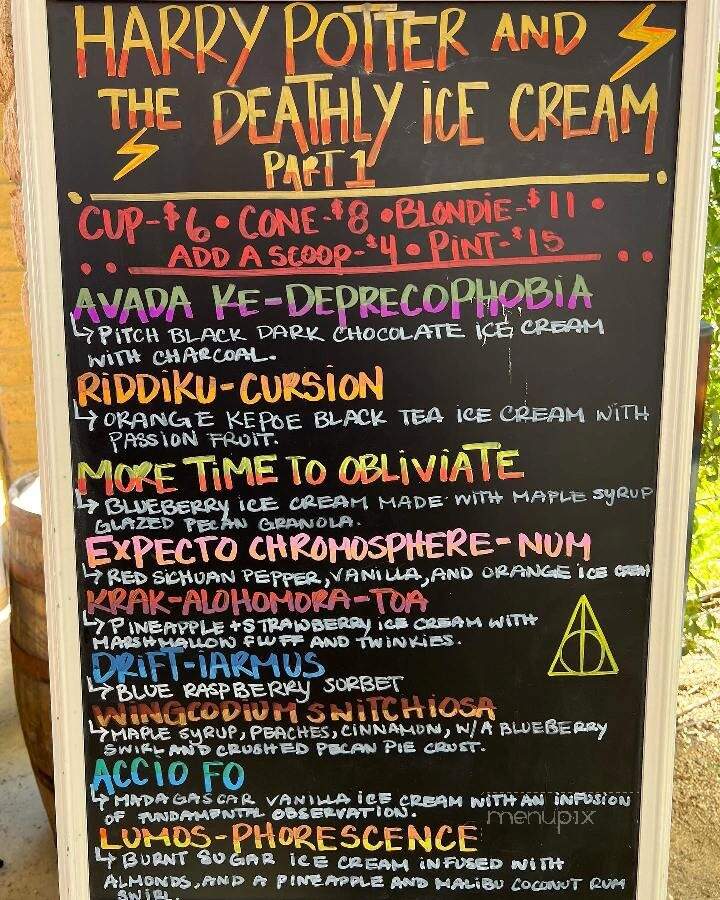 HARRY POTTER AND
THE DEATHLY ICE CREAM
PART 1
CUP-$6 • CONE-$8 • BLONDIE-$11 •
ADD A SCOOP-$4 • PINT-$15
AVADA KE-DEPRECOPHOBIA
PITCH BLACK DARK CHOCOLATE ICE CREAM
WITH CHARCOAL.
RIDDIKU-CURSION
ORANGE KEPOE BLACK TEA ICE CREAM WITH
PASSION FRUIT.
MORE TIME TO OBLIVIATE
BLUEBERRY ICE CREAM MADE WITH MAPLE SYRUP
GLAZED PECAN GRANOLA.
EXPECTO CHROMOSPHERE-NUM
RED SICHUAN PEPPER, VANILLA, AND ORANGE ICE CREAM
KRAK-ALOHOMORA-TOA
PINEAPPLE + STRAWBERRY ICE CREAM WITH
MARSHMALLOW FLUFF AND TWINKIES.
DRIFT-IARMUS
BLUE RASPBERRY SORBET
WINGCODIUM SNITCHIOSA
MAPLE SYRUP, PEACHES, CINNAMON, W/A BLUEBERRY
SWIRL AND CRUSHED PECAN PIE CRUST.
ACCIO FO
MADAGASCAR VANILLA ICE CREAM WITH AN INFUSION
OF FUNDAMENTAL OBSERVATION.
menupix
LUMOS-PHORESCENCE
BURNT SUGAR ICE CREAM INFUSED WITH
ALMONDS, AND A PINEAPPLE AND MALIBU COCONUT RUM
SWIRL.